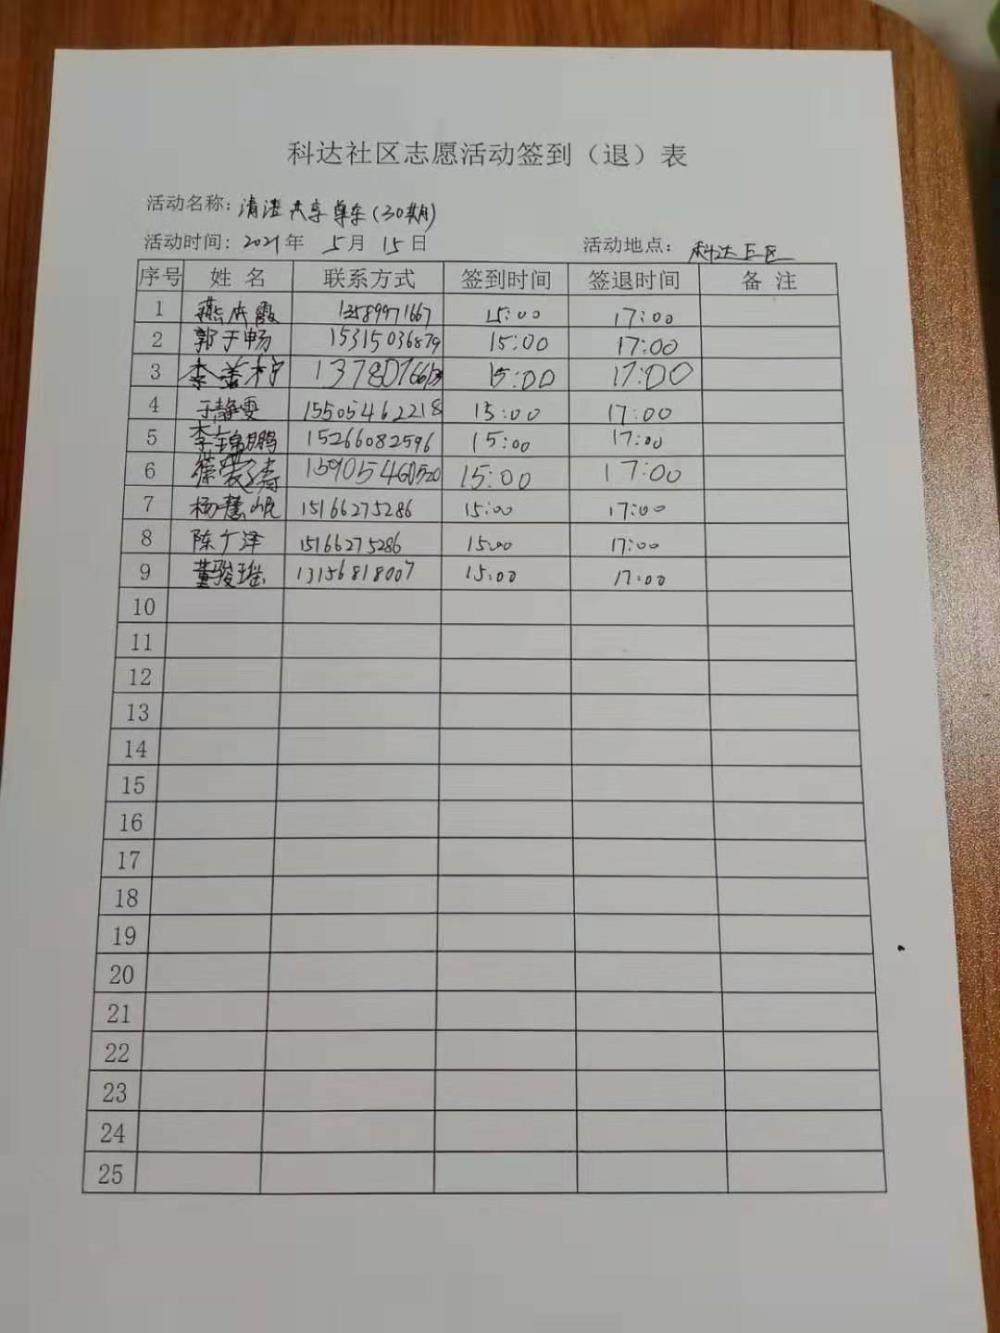 科达社区志愿活动签到（退）表
活动名称：清洁共享单车(30期)
活动时间：2021年 5月 15日 活动地点：科达E区
序号 姓名 联系方式 签到时间 签退时间 备注
1 燕 霞 13589971667 15:00 17:00
2 郭于畅 15315036879 15:00 17:00
3 李 15:00 17:00
4 于静雯 15505462218 15:00 17:00
5 李锦鹏 15266082596 15:00 17:00
6 15:00 17:00
7 杨慧 15166275286 15:00 17:00
8 陈广泽 15166275286 15:00 17:00
9 董骏 13156818007 15:00 17:00
10
11
12
13
14
15
16
17
18
19
20
21
22
23
24
25